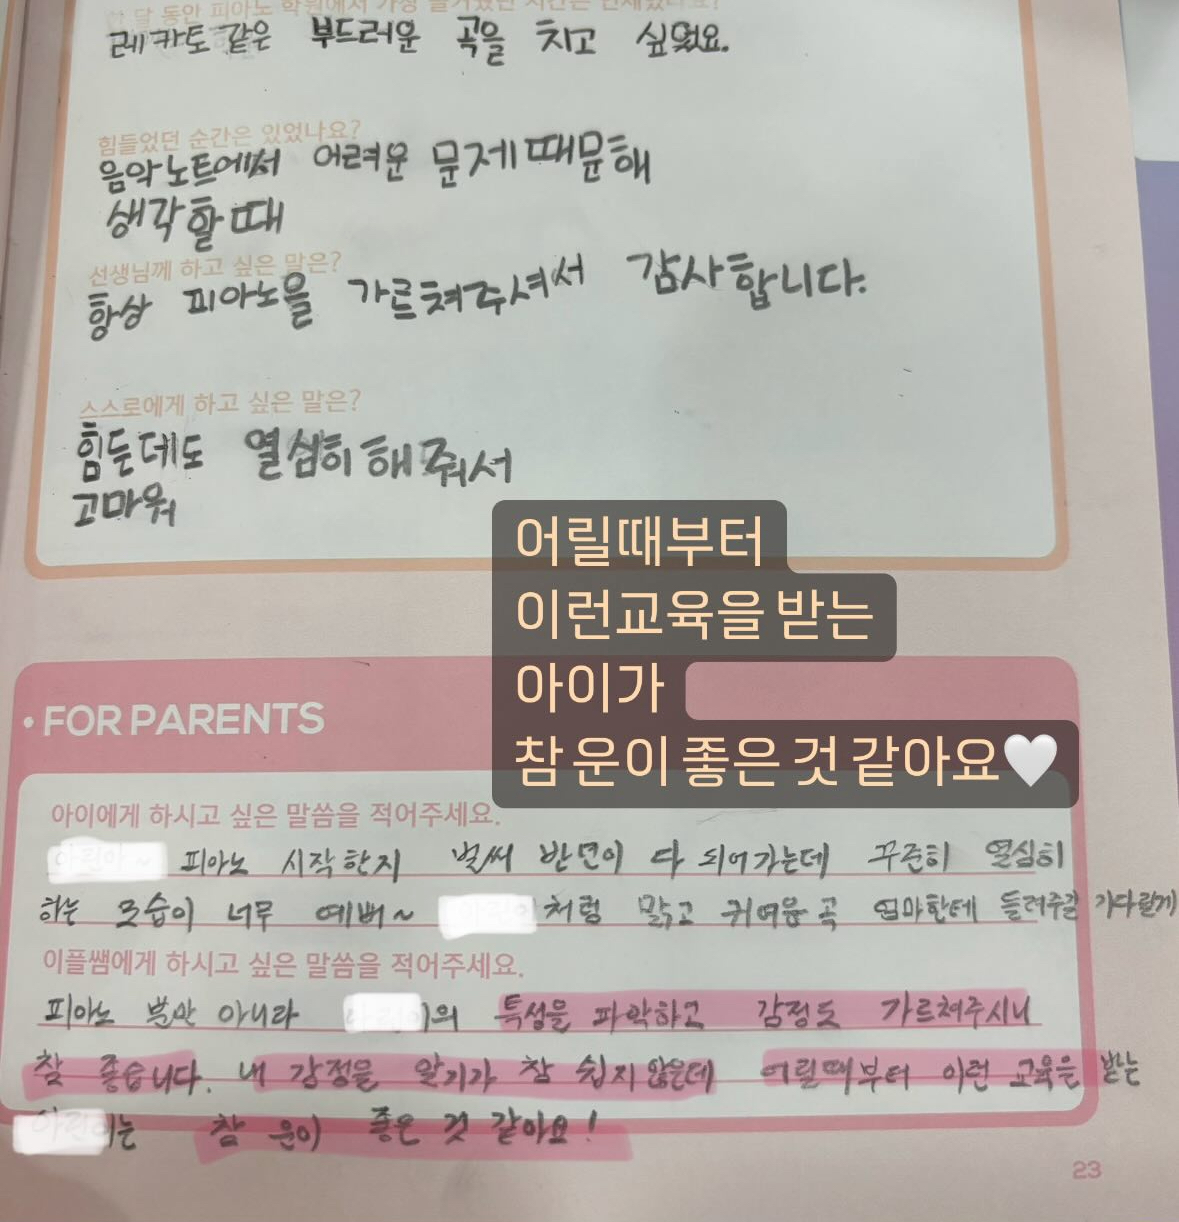 한 달 동안 피아노 학원에서 가장 즐거웠던 시간은 언제였나요?
레카토 같은 부드러운 곡을 치고 싶었요.
힘들었던 순간은 있었나요?
음악노트에서 어려운 문제때문해
생각할때
선생님께 하고 싶은 말은?
항상 피아노을 가르쳐주셔서 감사합니다.
스스로에게 하고 싶은 말은?
힘든데도 열심히 해줘서
고마워
어릴때부터
이런교육을 받는
아이가
참 운이 좋은 것 같아요🤍
• FOR PARENTS
아이에게 하시고 싶은 말씀을 적어주세요.
피아노 시작한지 벌써 반년이 다 되어가는데 꾸준히 열심히
하는 모습이 너무 예뻐~ 처럼 맑고 귀여운 곡 엄마한테 들려주길 기다릴게
이플쌤에게 하시고 싶은 말씀을 적어주세요.
피아노 뿐만 아니라 의 특성을 파악하고 감정도 가르쳐주시니
참 좋습니다. 내 감정을 알기가 참 쉽지 않은데 어릴때부터 이런 교육을 받는
는 참 운이 좋은 것 같아요!
23